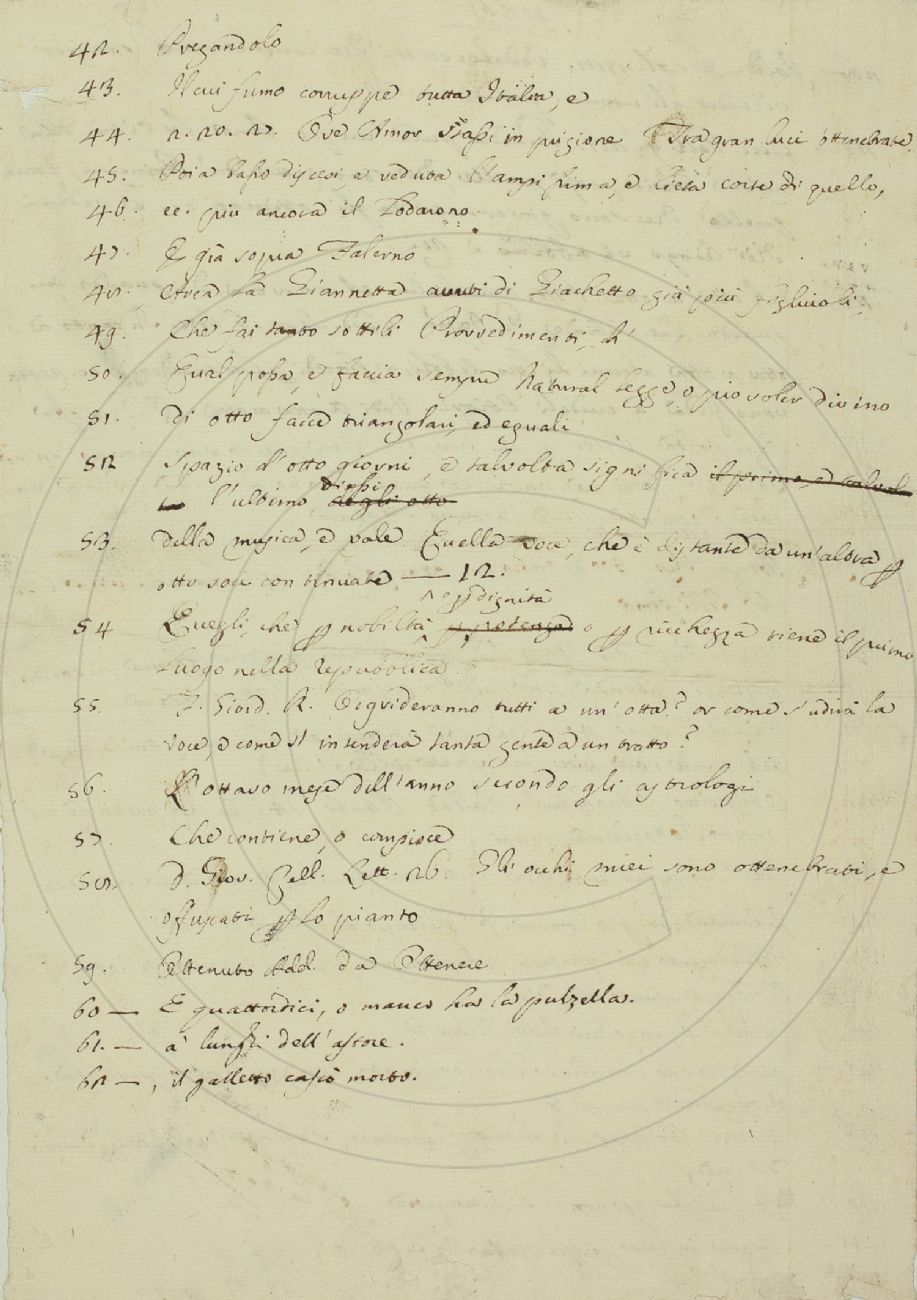 42. Pregandolo
43. Il cui fumo corruppe tutta Italia, e
44. 2. 20. 27. Ove Amor stassi in prigione Tra gran luci ottenebrate.
45. Poi a basso discesi, e veduta l'ampissima, e lieta corte di quello,
46. ec. piu ancora il
47. E già sopra Falerno
48. Avea la Giannetta avuti di Giachetto già più figliuoli.
49. Che fai tanto sottili Provvedimenti, di
50. Qual possa, e faccia sempre Natural legge, o pio voler divino
51. Di otto facce triangolari, ed eguali
52 Spazio d'otto giorni, e talvolta significa il primo, e talvol
ta l'ultimo degli otto dì essi
53. della musica, e vale Quella voce, che è distante da un'altra p
otto voci continuate — 12.
54 Quegli, che p nobiltà, o p dignità p potenza o p ricchezza tiene il primo
luogo nella repubblica
55. F. Giord. R. Degvideranno tutti a un'otta? or come s'udirà la
voce, e come si intenderà tanta gente a un tratto?
56. L'ottavo mese dell'anno secondo gli astrologi
57. Che contiene, o compisce
58. d. Giov. Cell. Lett. 26. Gli occhi miei sono ottenebrati, e
offuscati p lo pianto
59. Ottenuto Add. da Ottenere
60 — E quattordici, o manco ha la pulzella.
61. — a' lunghi dell'astore.
62 —, il galletto cascò morto.